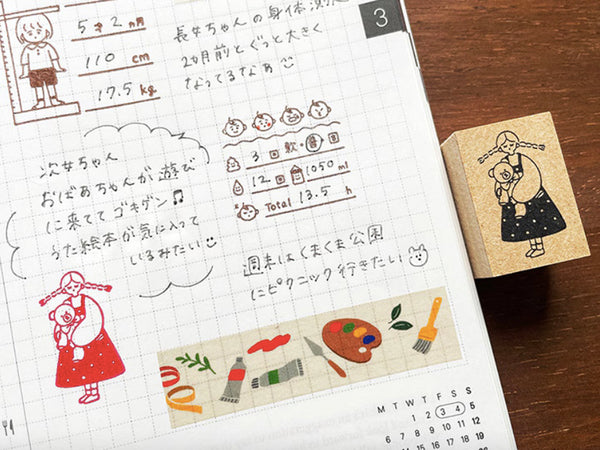 5才2ヵ月
110 cm
17.5 kg
長女ちゃんの身体測定
2か月前とぐっと大きく
なってるなあ
3
次女ちゃん
おばあちゃんが遊び
に来ててゴキゲン♫
うた絵本が気に入って
いるみたい
3 回 軟・普・固
12 回 1050 ml
Total 13.5 h
週末はくまくま公園
にピクニック行きたい
M T W T F S S
1 2 3 4 5
6 7 8 9 10 11 12